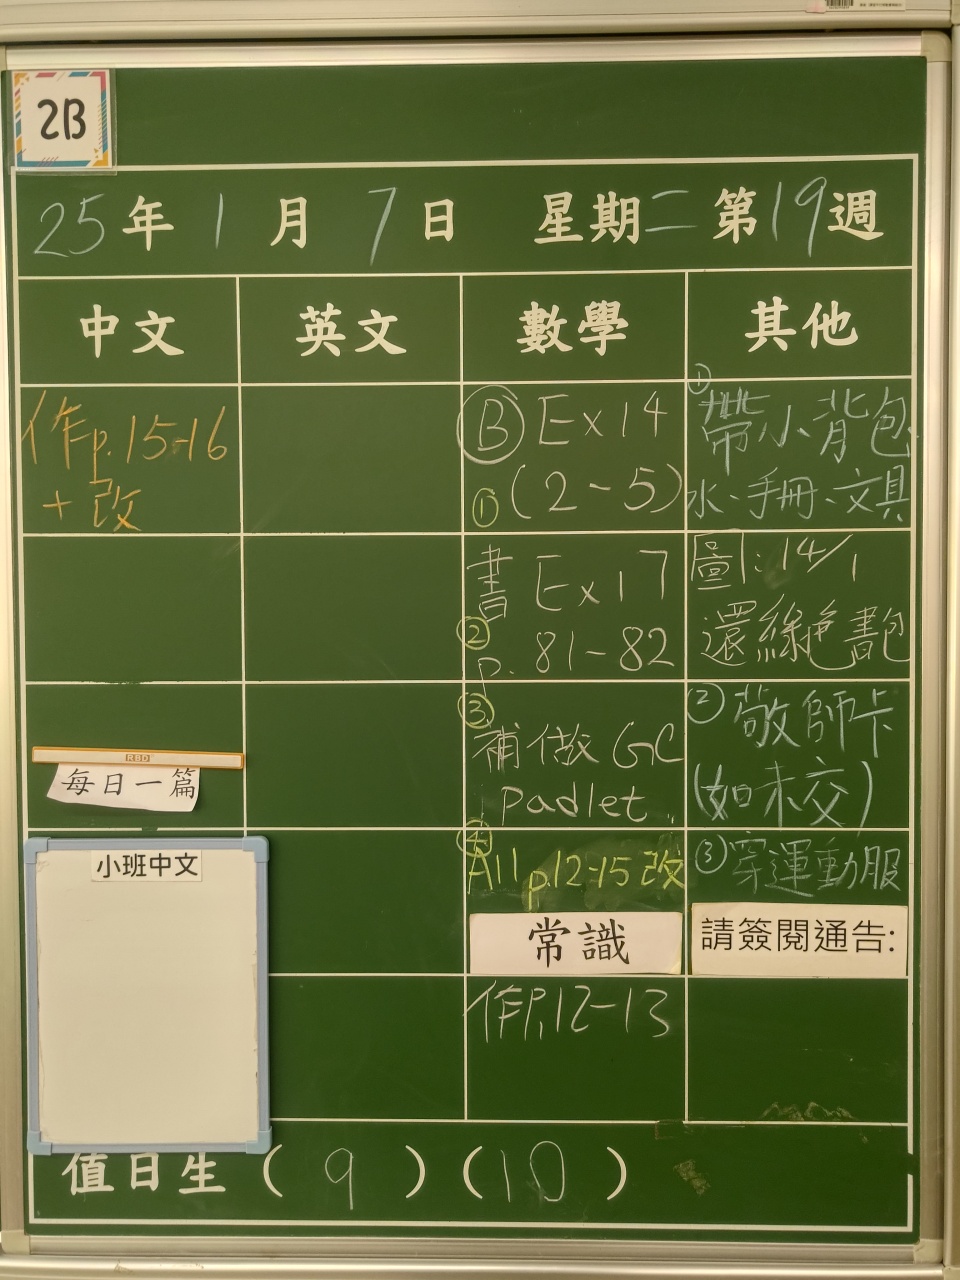 2B
25年1月7日 星期二第19週
中文 英文 數學 其他
作p.15-16
+改
每日一篇
小班中文
Ⓑ Ex14
①(2-5)
書 Ex17
② p.81-82
③
補做 GC
Padlet
④
All p.12-15改
常識
作P.12-13
①
帶小背包
水、手冊、文具
圖:14/1
還綠色書包
②敬師卡
(如未交)
③穿運動服
請簽閱通告:
值日生(9)(10)